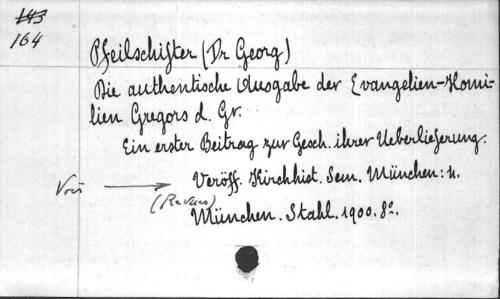 143
164
Pfeilschifter (Dr Georg)
Die authentische Ausgabe der Evangelien-Homi-
lien Gregors d. Gr.
Ein erster Beitrag zur Gesch. ihrer Ueberlieferung.
Voir → Veröff. Kirchhist. Sem. München: 4.
(Revues)
München. Stahl. 1900. 8º.